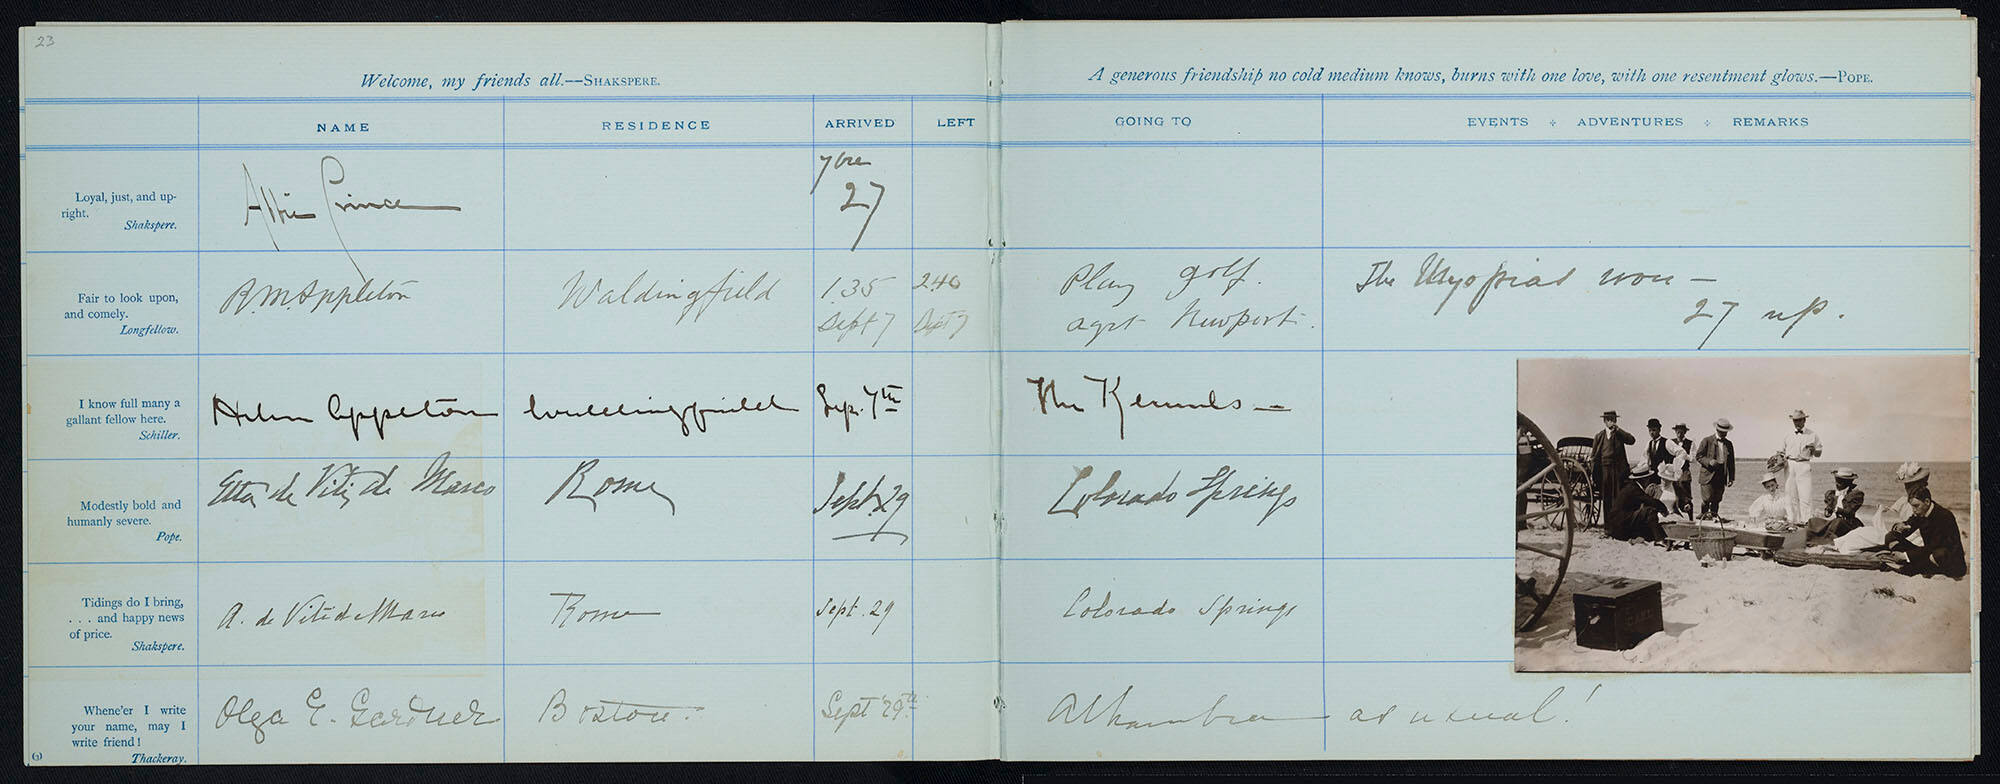 23
Welcome, my friends all.—SHAKSPERE.
NAME RESIDENCE ARRIVED LEFT
Loyal, just, and up-
right.
Shakspere.
7bre
27
Fair to look upon,
and comely.
Longfellow.
R. M. Appleton Waldingfield 1.35 240
Sept 7 Sept 7
I know full many a
gallant fellow here.
Schiller.
Helen Appleton Waldingfield Sep. 7th
Modestly bold and
humanly severe.
Pope.
Etta de Viti de Marco Rome Sept. 29
Tidings do I bring,
. . . and happy news
of price.
Shakspere.
A. de Viti de Marco Rome Sept. 29
Whene'er I write
your name, may I
write friend!
Thackeray.
Olga E. Gardner Boston. Sept 29th
A generous friendship no cold medium knows, burns with one love, with one resentment glows.—POPE.
GOING TO EVENTS ÷ ADVENTURES ÷ REMARKS
Play golf. The Myopias won —
agst Newport. 27 up.
The Kennels —
Colorado Springs
Colorado Springs
Alhambra as usual!